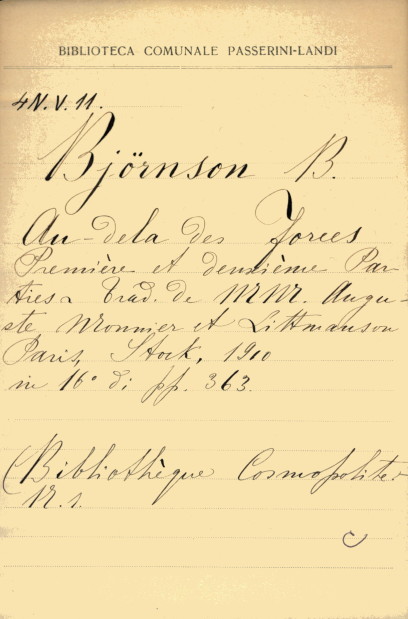 BIBLIOTECA COMUNALE PASSERINI-LANDI
4N.V.11.
Björnson B.
Au-dela des Forces
Première et deuxième Par
ties Trad. de MM. Augu-
ste Monnier et Littmanson
Paris, Stock, 1910
in 16° di pp. 363.
(Bibliothèque Cosmopolite.
N. 1.